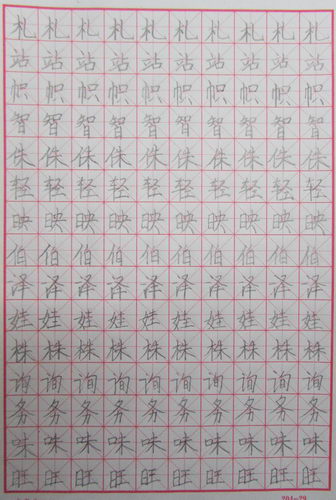 札札札札札札札札札札
站站站站站站站站站站
帜帜帜帜帜帜帜帜帜帜
智智智智智智智智智智
侏侏侏侏侏侏侏侏侏侏
轻轻轻轻轻轻轻轻轻轻
映映映映映映映映映映
伯伯伯伯伯伯伯伯伯伯
泽泽泽泽泽泽泽泽泽泽
娃娃娃娃娃娃娃娃娃娃
株株株株株株株株株株
询询询询询询询询询询
务务务务务务务务务务
味味味味味味味味味味
旺旺旺旺旺旺旺旺旺旺